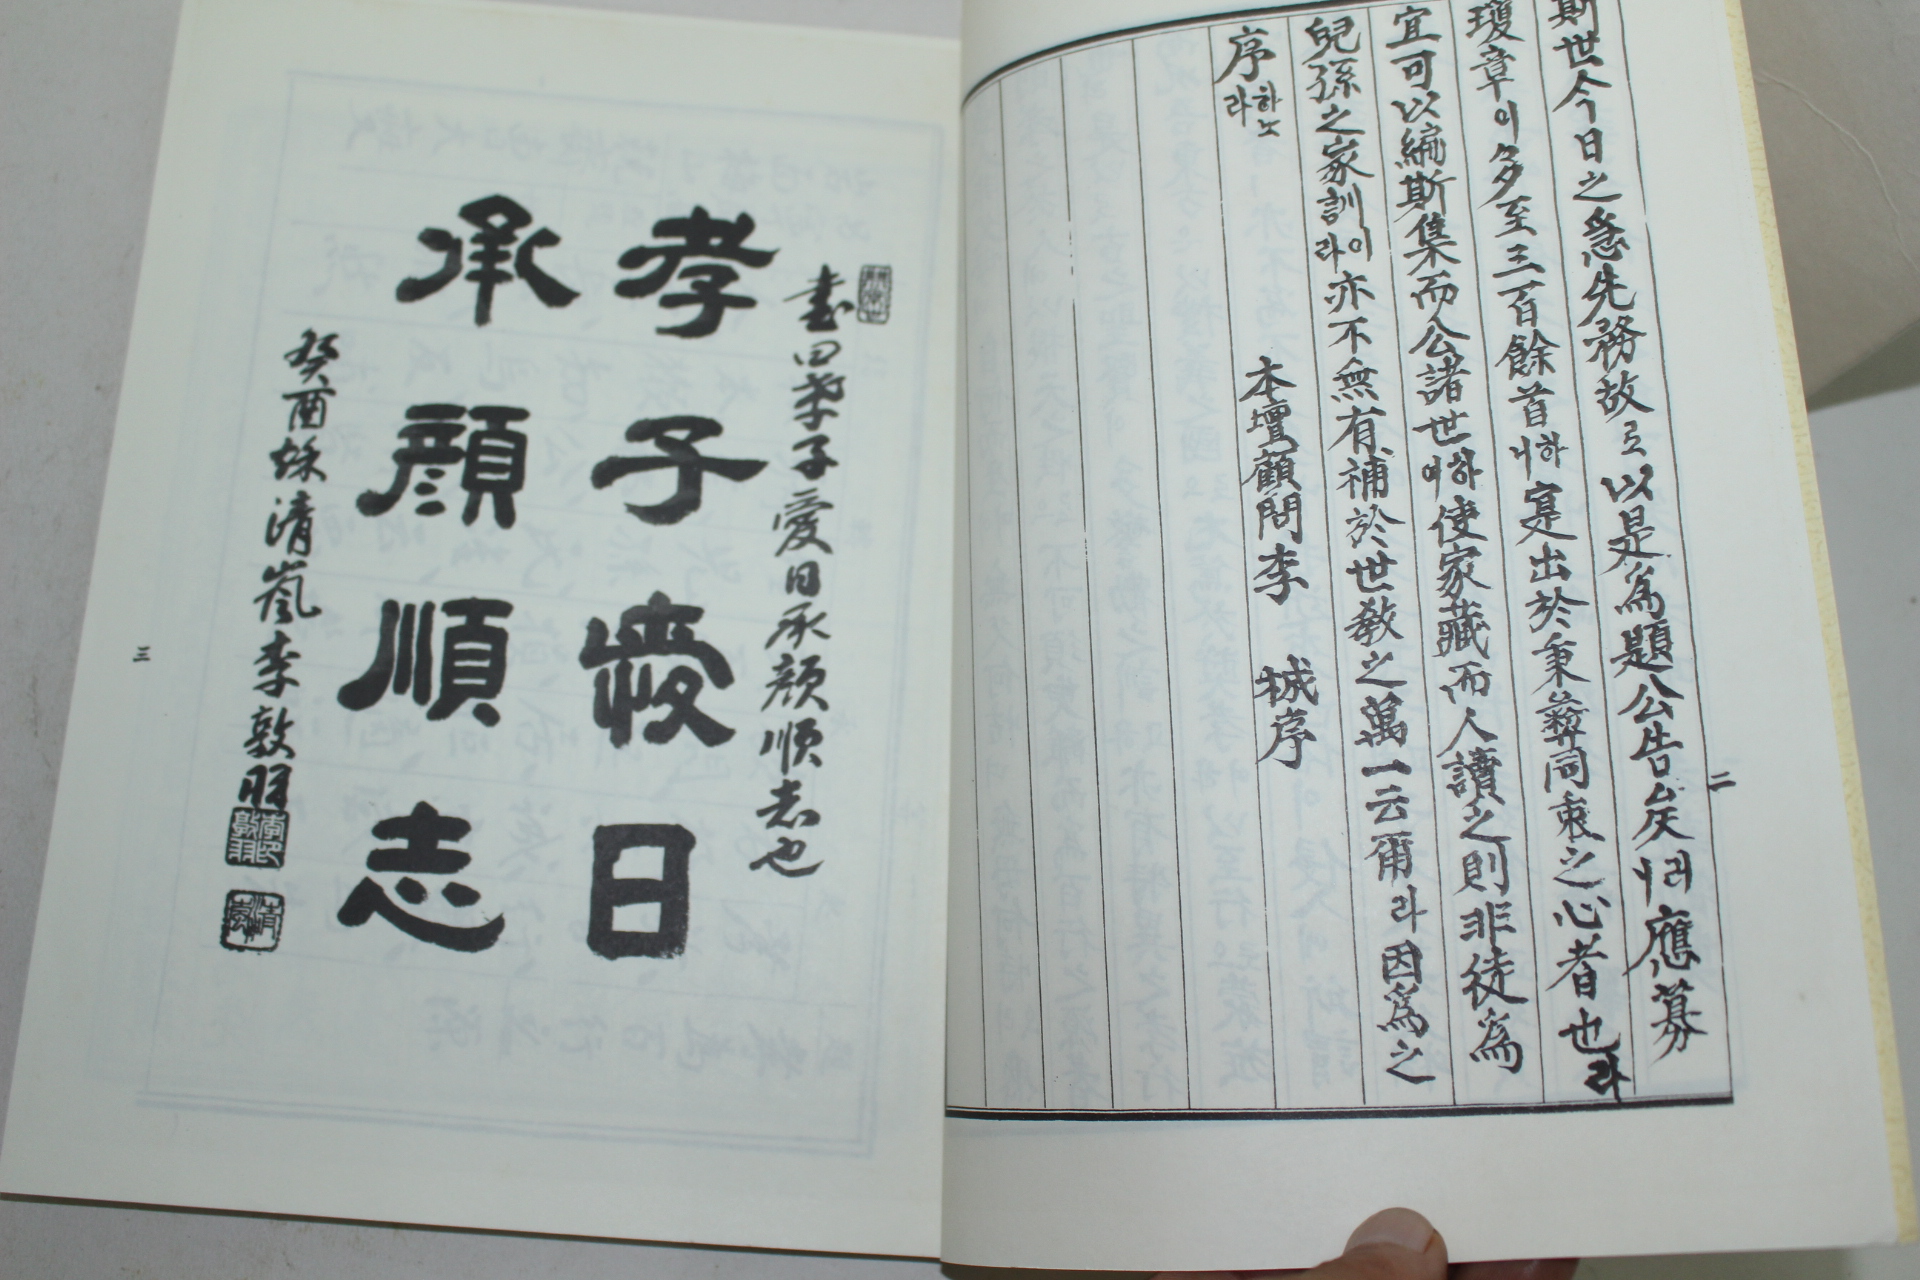 斯世今日之急先務故로以是爲題公告矣러니應募
瓊章이多至三百餘首하니寔出於秉彛同衷之心者也라
宜可以編斯集而公諸世하여使家藏而人讀之則非徒爲
兒孫之家訓이라亦不無有補於世敎之萬一云爾라因爲之
序하노라
本壇顧問李 棫序
二
書曰孝子愛日承顔順志也
孝子愛日
承顔順志
癸酉秋淸嵐李敦羽
三